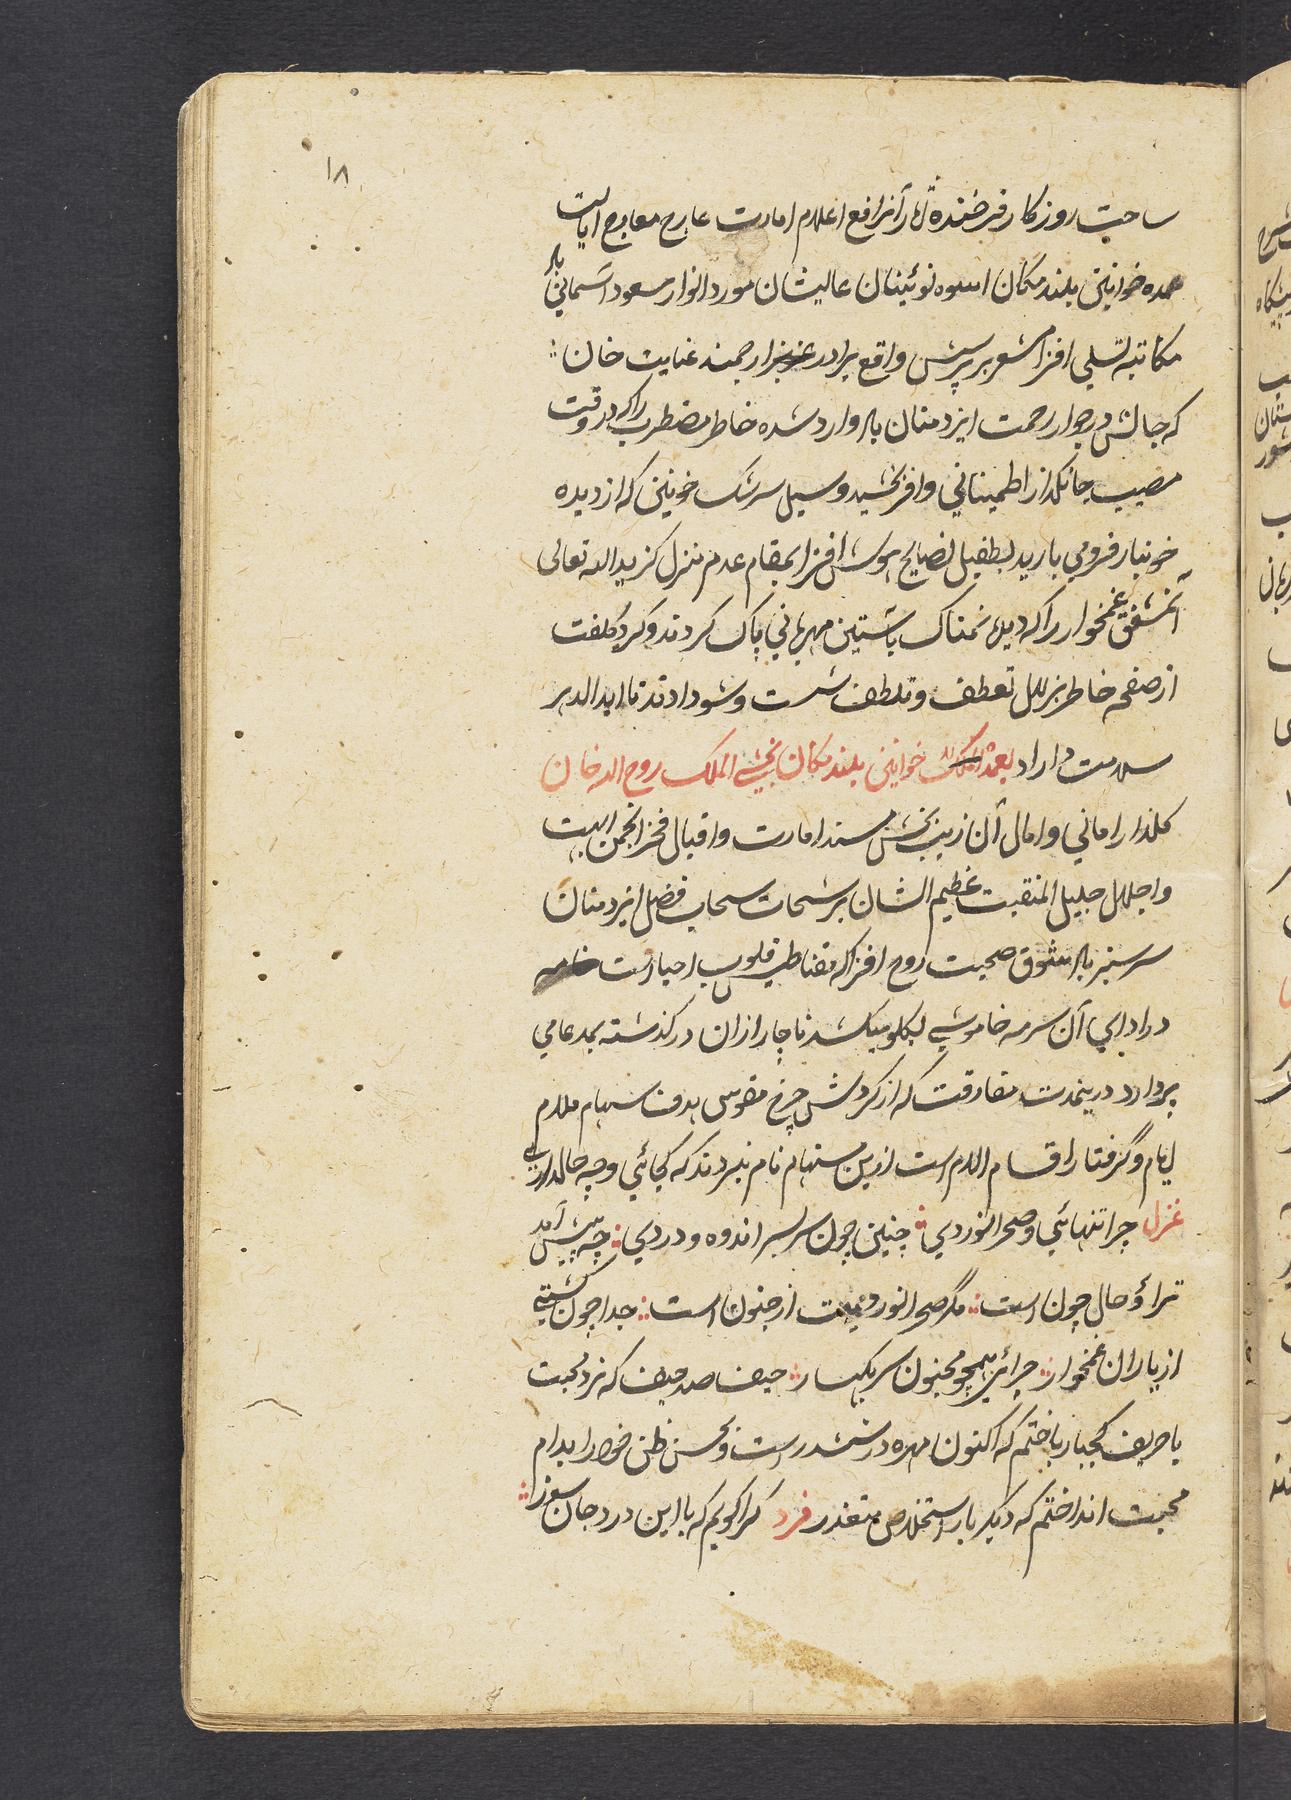 ۱۸
ساحت روزکار فرخنده آثار آنرافع اعلام امارت عارج معارج ایالت
عمده خوانین بلند مکان اسوه نوئینان عالیشان مورد انوار سعود آسمانی باد
مکاتبه تسلی افزا مشعر بر پرسش واقع برادر عزیز ارجمند عنایت خان
که جانش در جوار رحمت ایزد منان باد وارد شده خاطر مضطرب را که در وقت
مصیبت جانکداز اطمینانی وافر بخشید و سیل سرشک خونین که از دیده
خونبار فرو می بارید بطفیل نصایح هوش افزا بمقام عدم منزل کزید الله تعالی
آنمشفق غمخوار را که دیده نمناک باستین مهربانی پاک کردند و کرد کلفت
از صفحه خاطر بزلال تعطف و تلطف شست و شو دادند تا ابد الدهر
سلامت داراد بعمدة الملک خوانین بلند مکان بخشی الملک روح الله خان
کلذار امانی و امال آن زیب بخش مسند امارت و اقبال فخر انجمن ابهت
و اجلال جلیل المنقبت عظیم الشان برشحات سحاب فضل ایزد منان
سرسبز باد شوق صحبت روح افزا که مقناطیس قلوب احباست خامه
در ادای آن سرمه خاموشی بکلو میکشد ناچار ازان درکذشته بمدعا می
پردازد درینمدت مفارقت که از کردش چرخ مقوس هدف سهام ملام
ایام و گرفتار اقسام الام است ازین مستهام نام نبردند که کجائی و چه حالداری
غزل چرا تنهائی و صحرا نوردی چنین چون سربسر اندوه و دردی چه پیش آمد
ترا و حال چون است مگر صحرا نوردیت از جنون است جدا چون کشتی
از یاران غمخوار چرائی همچو مجنون سر بکهسار حیف صد حیف که نرد محبت
با حریف کجباز باختم که اکنون مهره در ششدر است و بحسن ظن خود را بدام
محبت انداختم که دیکر بار استخلاص متعذر فرد کرا کویم که با این درد جان سوز